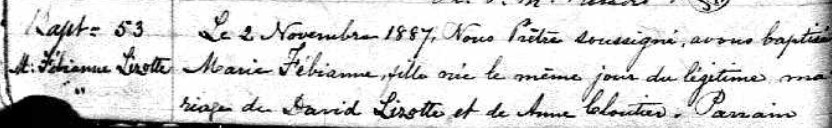 Bapt= 53
M. Fébianne Lizotte
"
Le 2 Novembre 1887, Nous Prêtre soussigné, avons baptisé
Marie Fébianne, fille née le même jour du légitime ma
riage de David Lizotte et de Anne Cloutier. Parrain